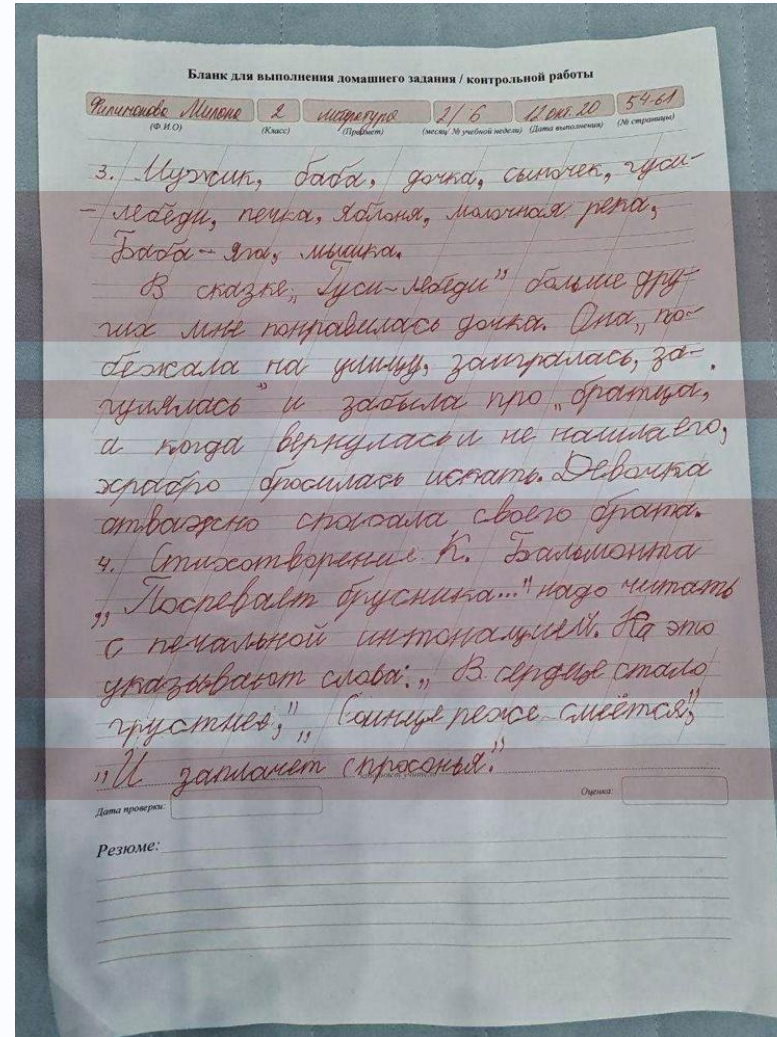 Бланк для выполнения домашнего задания / контрольной работы
Филимонова Милана 2 литература 2/6 12 окт. 20 54-61
(Ф.И.О) (Класс) (Предмет) (месяц/ № учебной недели) (Дата выполнения) (№ страницы)
3. Мужик, баба, дочка, сыночек, гуси-
- лебеди, печка, яблоня, молочная река,
Баба-яга, мышка.
В сказке „Гуси-лебеди” больше дру-
гих мне понравилась дочка. Она „по-
бежала на улицу, заигралась, за-
гулялась” и забыла про „братца,
а когда вернулась и не нашла его,
храбро бросилась искать. Девочка
отважно спасала своего брата.
4. Стихотворение К. Бальмонта
„Поспевает брусника...” надо читать
с печальной интонацией. На это
указывают слова: „В сердце стало
грустнее,” „Солнце реже смеётся”,
„И заплачет спросонья.”
Дата проверки: Оценка:
Резюме: